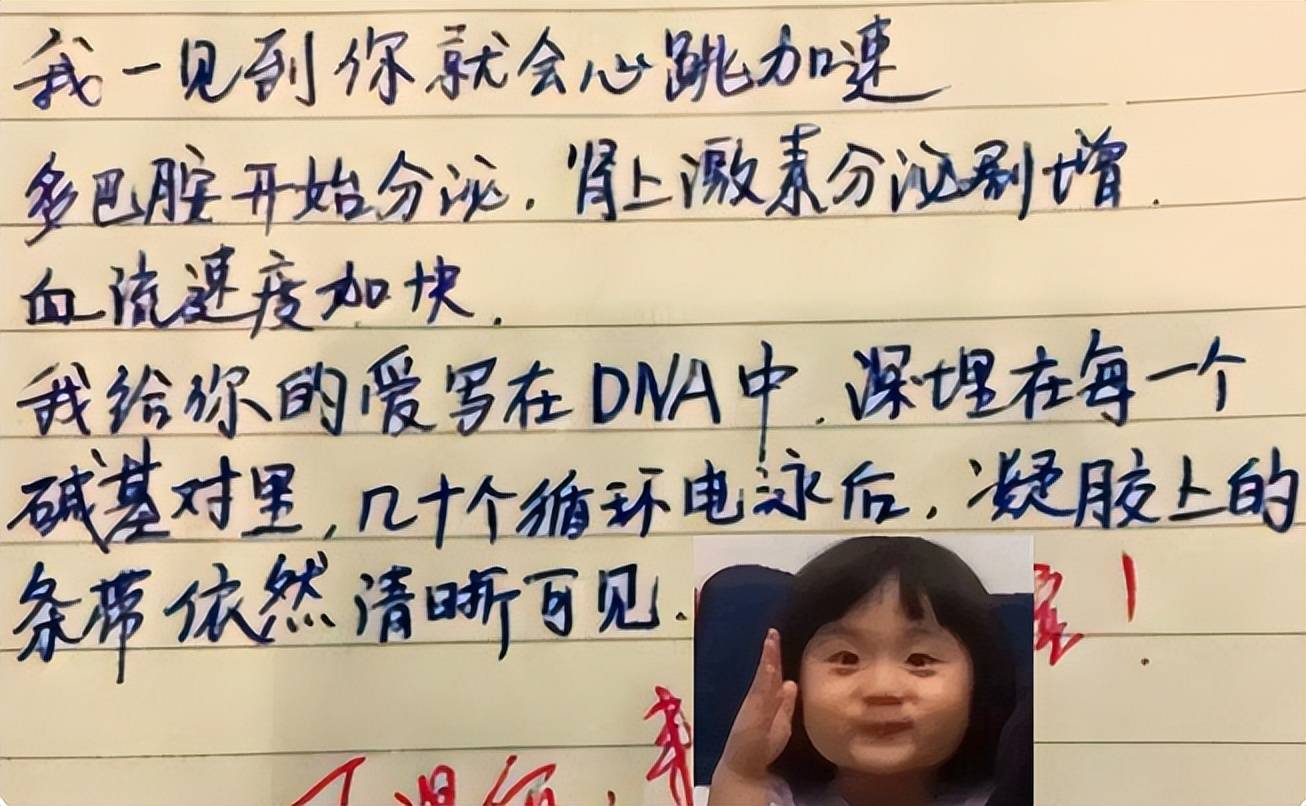 我一见到你就会心跳加速
多巴胺开始分泌，肾上激素分泌剧增.
血流速度加快.
我给你的爱写在DNA中，深埋在每一个
碱基对里，几十个循环电泳后，凝胶上的
条带依然清晰可见.
！